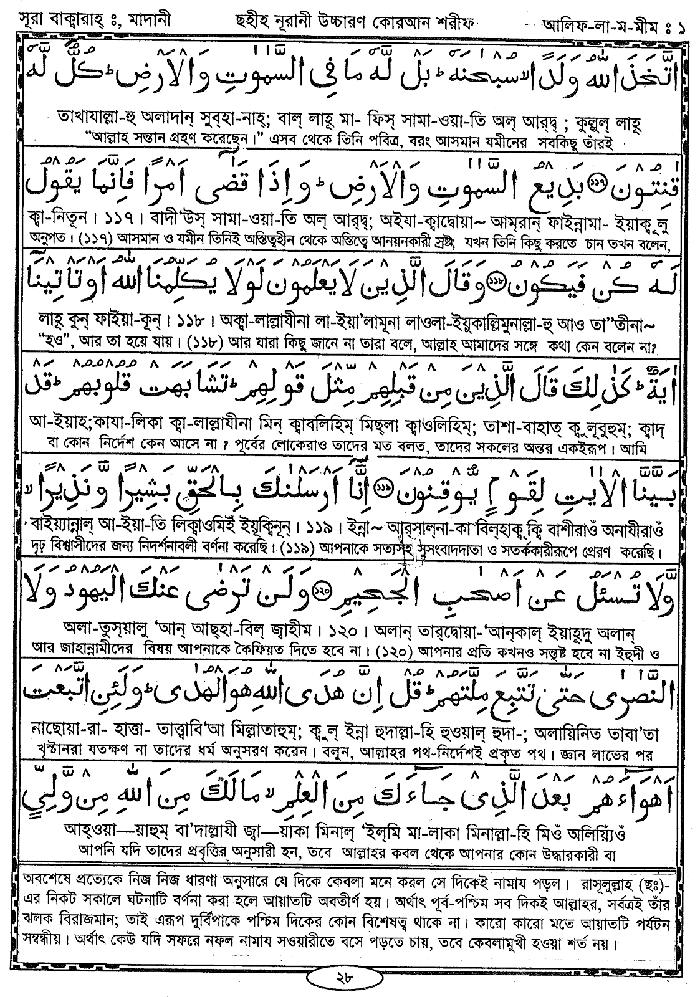 সূরা বাক্বারাহ্ ঃ, মাদানী ছহীহ নূরানী উচ্চারণ কোরআন শরীফ আলিফ-লা-ম-মীম ঃ ১
اتَّخَذَ اللّٰهُ وَلَدًا ۙ سُبْحٰنَهٗ ؕ بَلْ لَّهٗ مَا فِى السَّمٰوٰتِ وَالْاَرْضِ ؕ كُلٌّ لَّهٗ
তাখাযাল্লা-হু অলাদান্ সুব্হা-নাহ্; বাল্ লাহূ মা- ফিস্ সামা-ওয়া-তি অল্ আর্দ্ব্ ; কুল্লুল্ লাহূ
“আল্লাহ সন্তান গ্রহণ করেছেন।” এসব থেকে তিনি পবিত্র, বরং আসমান যমীনের সবকিছু তাঁরই
قٰنِتُوْنَ ۝١١٧ بَدِيْعُ السَّمٰوٰتِ وَالْاَرْضِ ؕ وَاِذَا قَضٰۤى اَمْرًا فَاِنَّمَا يَقُوْلُ
ক্বা-নিতূন্। ১১৭। বাদী‘উস্ সামা-ওয়া-তি অল্ আর্দ্ব্; অইযা-ক্বাদ্বোয়া~ আম্রান্ ফাইন্নামা- ইয়াক্বূলু
অনুগত। (১১৭) আসমান ও যমীন তিনিই অস্তিত্বহীন থেকে অস্তিত্বে আনয়নকারী স্রষ্টা, যখন তিনি কিছু করতে চান তখন বলেন,
لَهٗ كُنْ فَيَكُوْنُ ۝١١٨ وَقَالَ الَّذِيْنَ لَا يَعْلَمُوْنَ لَوْلَا يُكَلِّمُنَا اللّٰهُ اَوْ تَاْتِيْنَاۤ
লাহূ কুন্ ফাইয়া-কূন্। ১১৮। অক্বা-লাল্লাযীনা লা-ইয়া’লামূনা লাওলা-ইয়ুকাল্লিমুনাল্লা-হু আও তা”তীনা~
“হও”, আর তা হয়ে যায়। (১১৮) আর যারা কিছু জানে না তারা বলে, আল্লাহ আমাদের সঙ্গে কথা কেন বলেন না?
اٰيَةٌ ؕ كَذٰلِكَ قَالَ الَّذِيْنَ مِنْ قَبْلِهِمْ مِّثْلَ قَوْلِهِمْ ؕ تَشَابَهَتْ قُلُوْبُهُمْ ؕ قَدْ
আ-ইয়াহ্;কাযা-লিকা ক্বা-লাল্লাযীনা মিন্ ক্বাবলিহিম্ মিছ্লা ক্বাওলিহিম্; তাশা-বাহাত্ ক্বুলূবুহুম্; ক্বাদ্
বা কোন নির্দেশ কেন আসে না? পূর্বের লোকেরাও তাদের মত বলত, তাদের সকলের অন্তর একইরূপ। আমি
بَيَّنَّا الْاٰيٰتِ لِقَوْمٍ يُّوْقِنُوْنَ ۝١١٩ اِنَّاۤ اَرْسَلْنٰكَ بِالْحَقِّ بَشِيْرًا وَّنَذِيْرًا ۙ
বাইয়্যান্নাল্ আ-ইয়া-তি লিক্বাওমিইঁ ইয়ুক্বিনূন্। ১১৯। ইন্না~ আর্সাল্না-কা বিল্হাক্ব্ ক্বি বাশীরাওঁ অনাযীরাওঁ
দৃঢ় বিশ্বাসীদের জন্য নিদর্শনাবলী বর্ণনা করেছি। (১১৯) আপনাকে সত্যসহ সুসংবাদদাতা ও সতর্ককারীরূপে প্রেরণ করেছি।
وَّلَا تُسْـَٔلُ عَنْ اَصْحٰبِ الْجَحِيْمِ ۝١٢٠ وَلَنْ تَرْضٰى عَنْكَ الْيَهُوْدُ وَلَا
অলা-তুস্য়ালু ‘আন্ আছ্হা-বিল্ জ্বাহীম। ১২০। অলান্ তার্দ্বোয়া-‘আন্কাল্ ইয়াহূদু অলান্
আর জাহান্নামীদের বিষয় আপনাকে কৈফিয়ত দিতে হবে না। (১২০) আপনার প্রতি কখনও সন্তুষ্ট হবে না ইহুদী ও
النَّصٰرٰى حَتّٰى تَتَّبِعَ مِلَّتَهُمْ ؕ قُلْ اِنَّ هُدَى اللّٰهِ هُوَ الْهُدٰى ؕ وَلَئِنِ اتَّبَعْتَ
নাছোয়া-রা- হাত্তা- তাত্তাবি‘আ মিল্লাতাহুম্; ক্বুল্ ইন্না হুদাল্লা-হি হুওয়াল্ হুদা-; অলায়িনিত তাবা’তা
খৃস্টানরা যতক্ষণ না তাদের ধর্ম অনুসরণ করেন। বলুন, আল্লাহর পথ-নির্দেশই প্রকৃত পথ। জ্ঞান লাভের পর
اَهْوَآءَهُمْ بَعْدَ الَّذِىْ جَآءَكَ مِنَ الْعِلْمِ ۙ مَا لَكَ مِنَ اللّٰهِ مِنْ وَّلِىٍّ
আহ্ওয়া—য়াহুম্ বা’দাল্লাযী জ্বা—য়াকা মিনাল্ ‘ইল্মি মা-লাকা মিনাল্লা-হি মিওঁ অলিয়্যিওঁ
আপনি যদি তাদের প্রবৃত্তির অনুসারী হন, তবে আল্লাহর কবল থেকে আপনার কোন উদ্ধারকারী বা
অবশেষে প্রত্যেকে নিজ নিজ ধারণা অনুসারে যে দিকে কেবলা মনে করল সে দিকেই নামায পড়ল। রাসূলুল্লাহ (ছঃ)-
এর নিকট সকালে ঘটনাটি বর্ণনা করা হলে আয়াতটি অবতীর্ণ হয়। অর্থাৎ পূর্ব-পশ্চিম সব দিকই আল্লাহর, সর্বত্রই তাঁর
ঝলক বিরাজমান; তাই এরূপ দুর্বিপাকে পশ্চিম দিকের কোন বিশেষত্ব থাকে না। কারো কারো মতে আয়াতটি পর্যটন
সম্বন্ধীয়। অর্থাৎ কেউ যদি সফরে নফল নামায সওয়ারীতে বসে পড়তে চায়, তবে কেবলামুখী হওয়া শর্ত নয়।
২৮